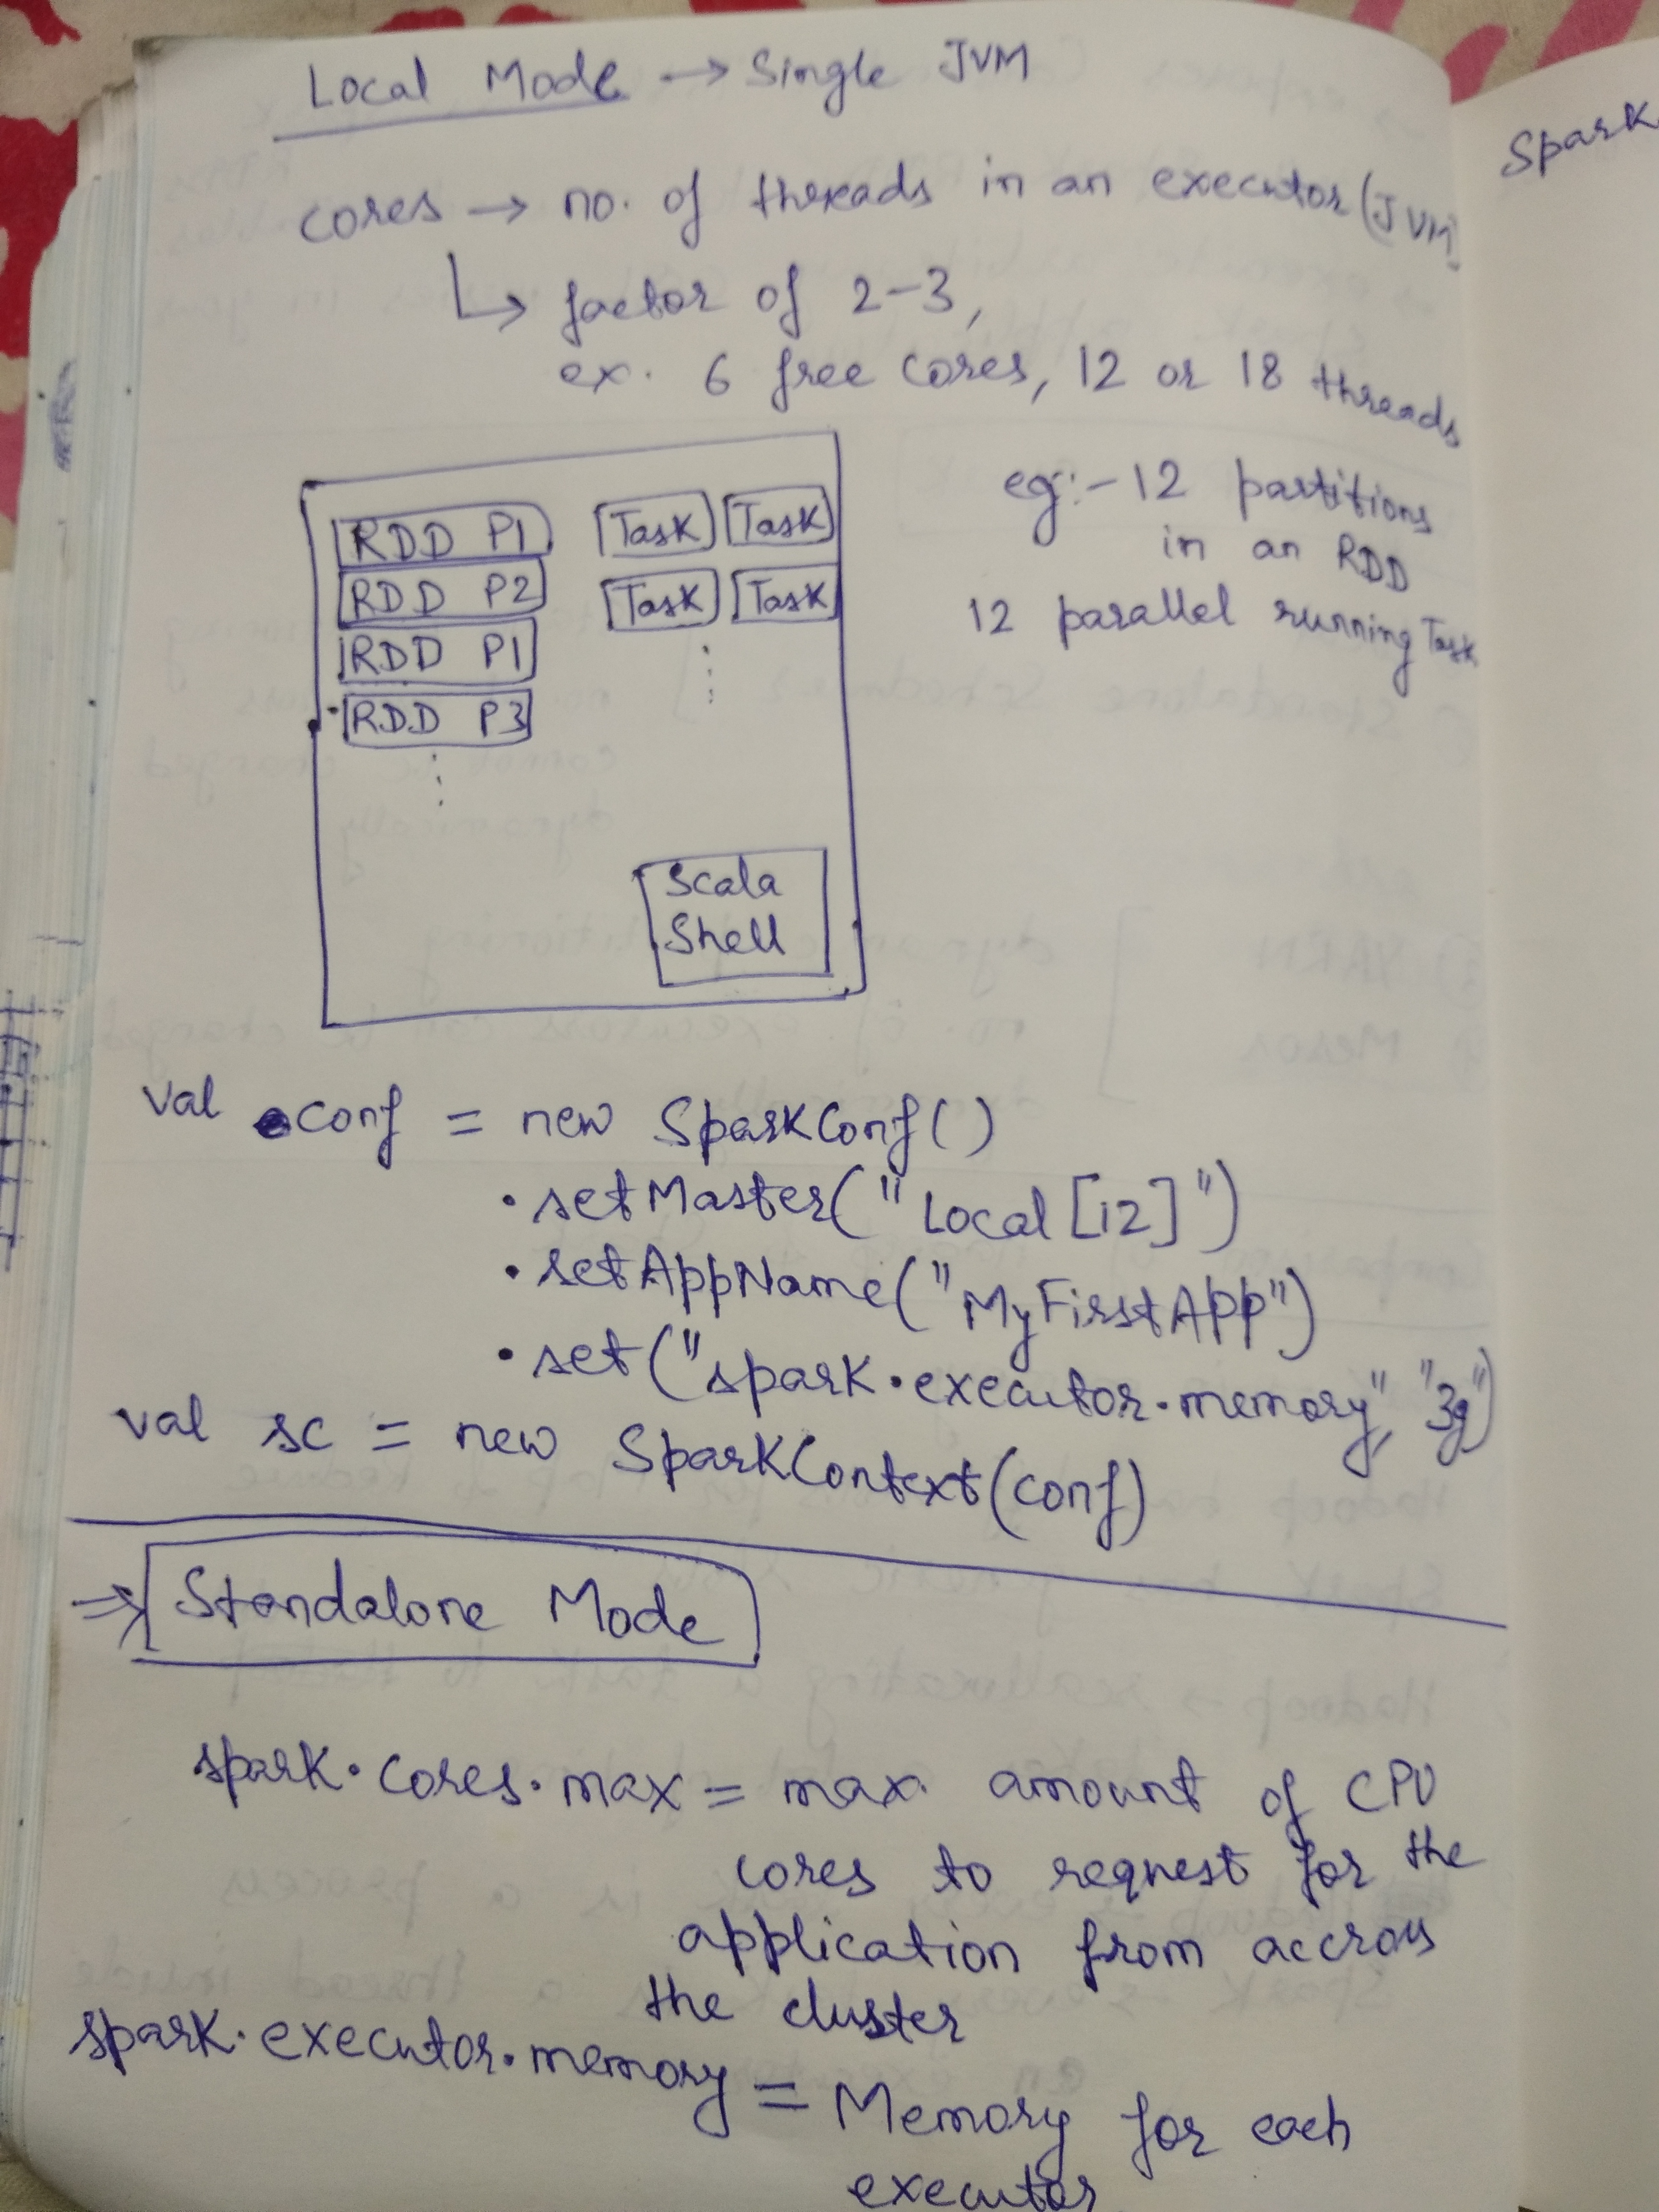 Local Mode → Single JVM
cores → no. of threads in an executor (JVM)
↳ factor of 2-3,
ex. 6 free cores, 12 or 18 threads
RDD P1 Task Task
RDD P2 Task Task
RDD P1
RDD P3
Scala
Shell
eg:- 12 partitions
in an RDD
12 parallel running Task
val conf = new SparkConf()
.setMaster("Local[12]")
.setAppName("MyFirstApp")
.set("spark.executor.memory", "3g")
val sc = new SparkContext(conf)
⇒ Standalone Mode
spark.cores.max = max. amount of CPU
cores to request for the
application from accross
the cluster
spark.executor.memory = Memory for each
executor
Spark